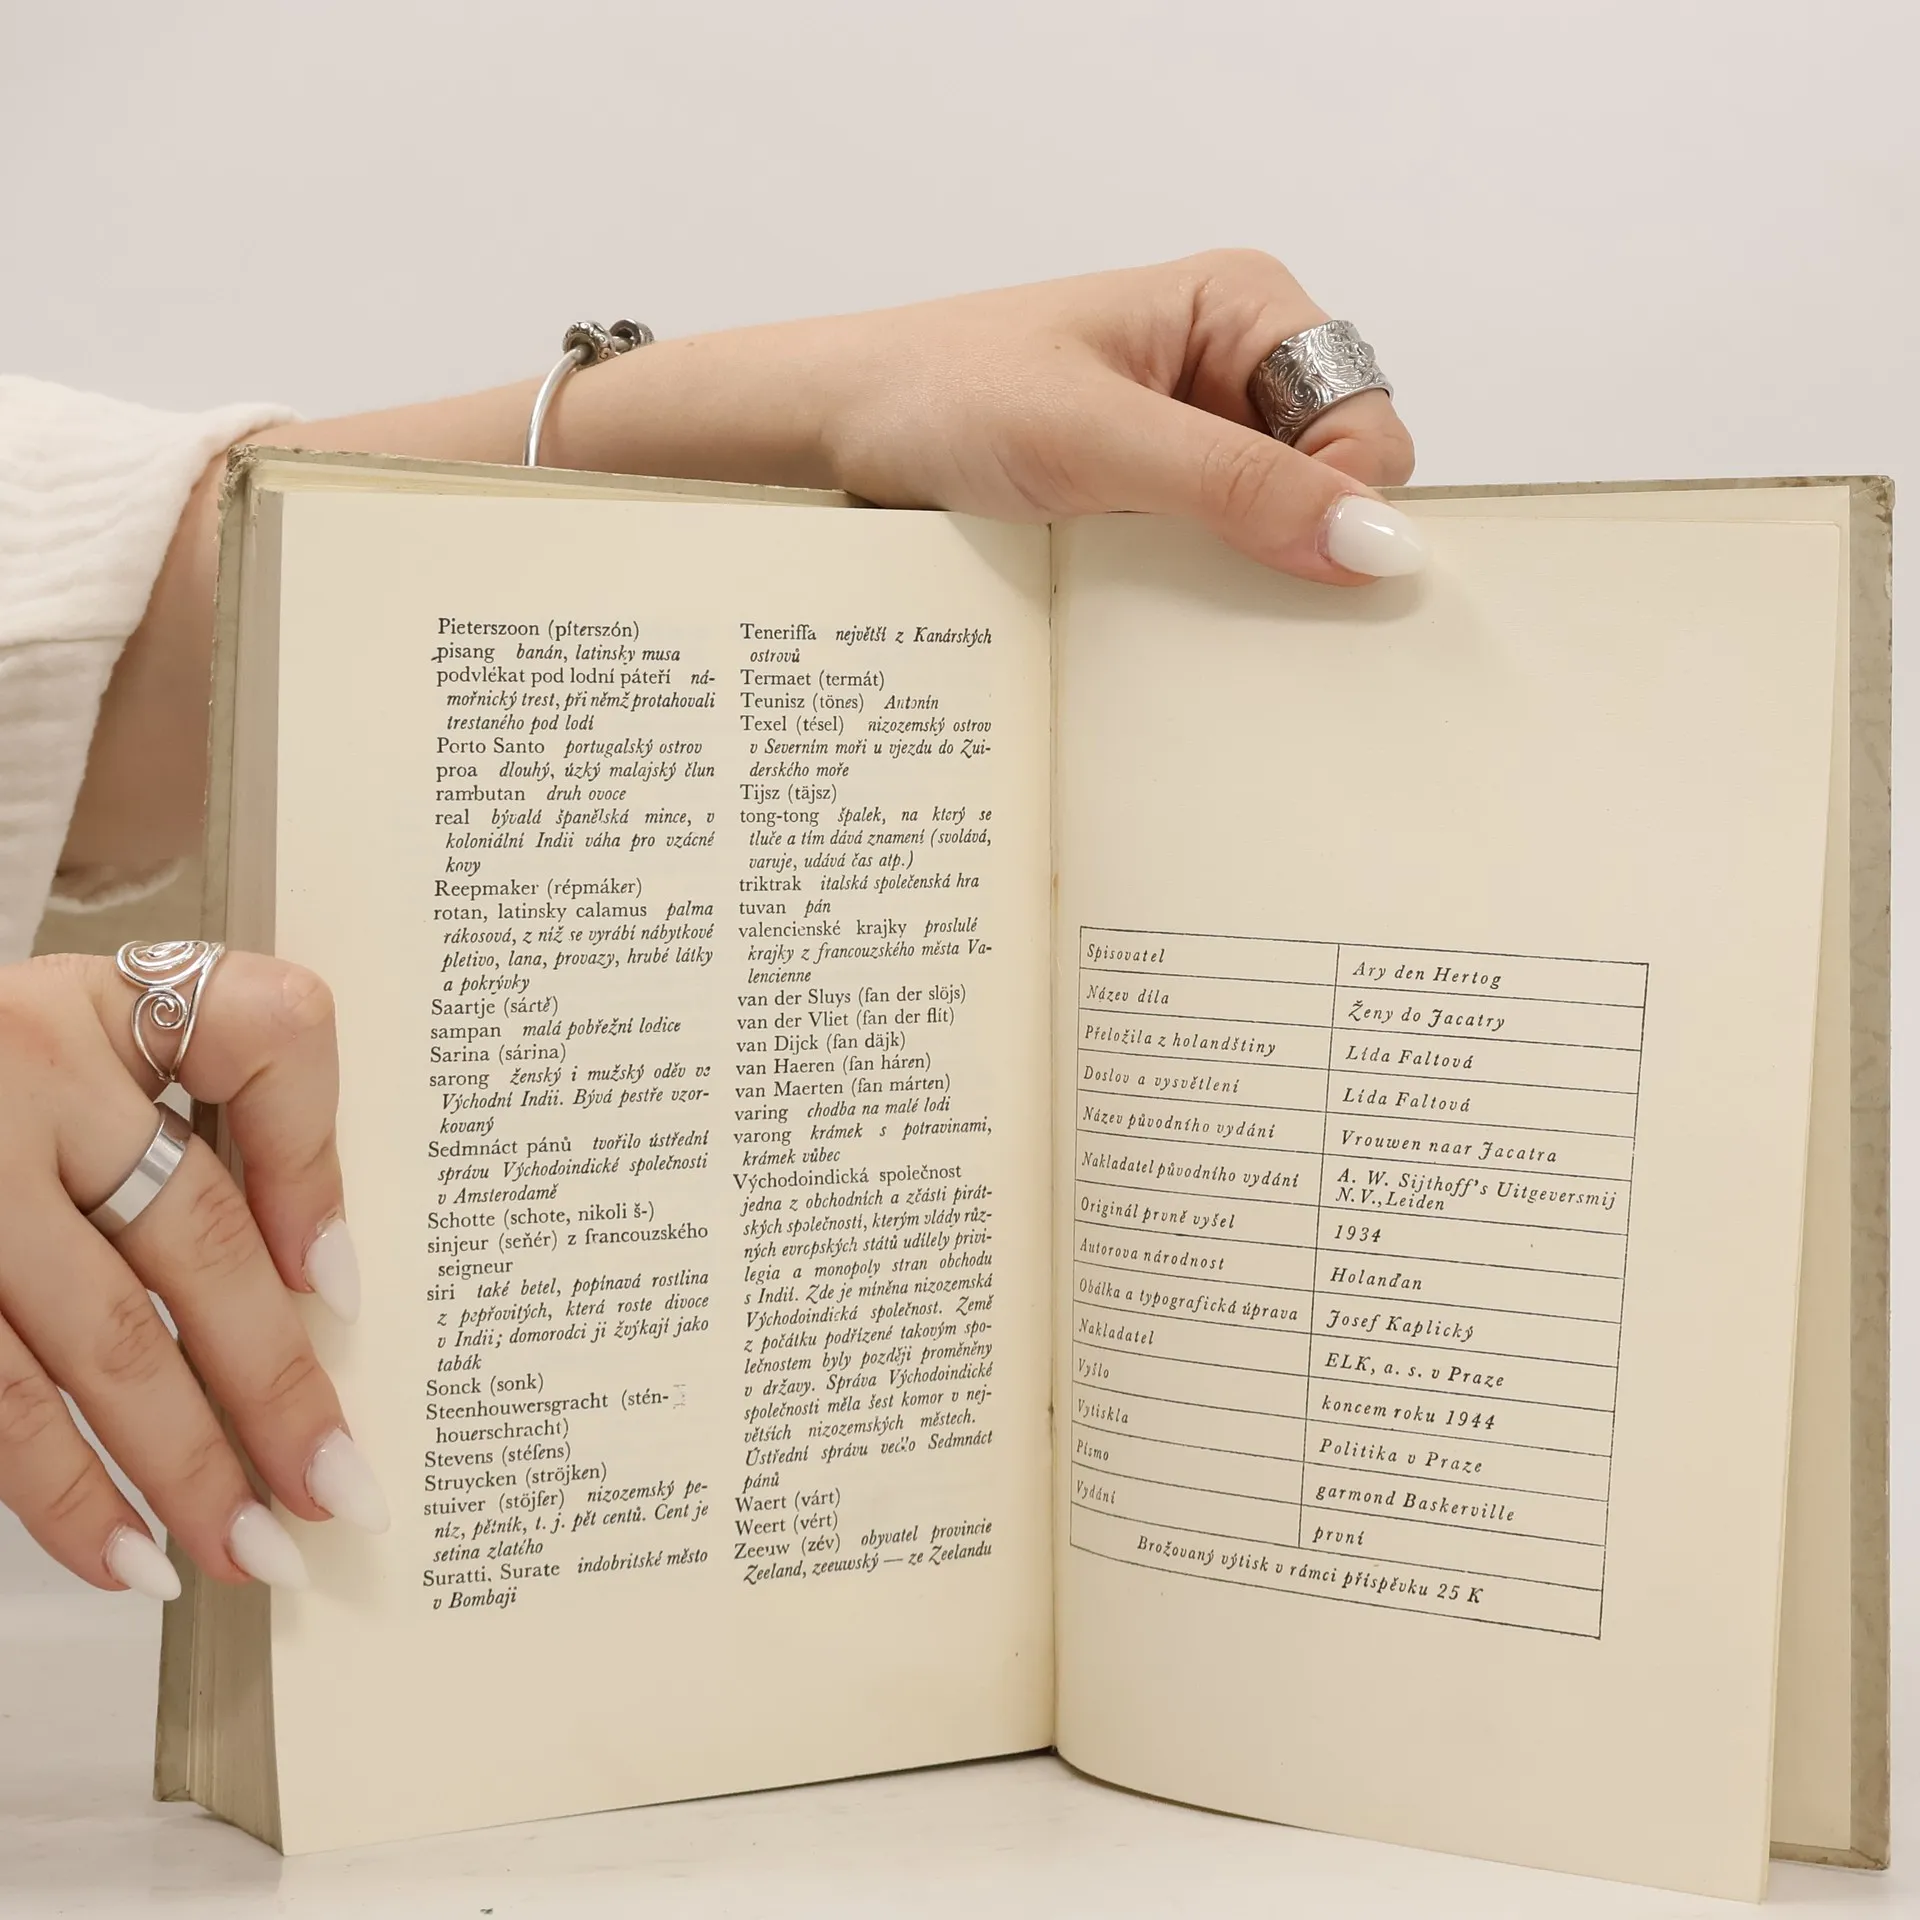 Pieterszoon (píterszón)
pisang banán, latinsky musa
podvlékat pod lodní páteří ná-
mořnický trest, při němž protahovali
trestaného pod lodí
Porto Santo portugalský ostrov
proa dlouhý, úzký malajský člun
rambutan druh ovoce
real bývalá španělská mince, v
koloniální Indii váha pro vzácné
kovy
Reepmaker (répmáker)
rotan, latinsky calamus palma
rákosová, z níž se vyrábí nábytkové
pletivo, lana, provazy, hrubé látky
a pokrývky
Saartje (sártě)
sampan malá pobřežní lodice
Sarina (sárina)
sarong ženský i mužský oděv ve
Východní Indii. Bývá pestře vzor-
kovaný
Sedmnáct pánů tvořilo ústřední
správu Východoindické společnosti
v Amsterodamě
Schotte (schote, nikoli š-)
sinjeur (seňér) z francouzského
seigneur
siri také betel, popínavá rostlina
z pepřovitých, která roste divoce
v Indii; domorodci ji žvýkají jako
tabák
Sonck (sonk)
Steenhouwersgracht (stén-
houerschracht)
Stevens (stéfens)
Struycken (ströjken)
stuiver (stöjfer) nizozemský pe-
níz, pětník, t. j. pět centů. Cent je
setina zlatého
Suratti, Surate indobritské město
v Bombaji
Teneriffa největší z Kanárských
ostrovů
Termaet (termát)
Teunisz (tönes) Antonín
Texel (tésel) nizozemský ostrov
v Severním moři u vjezdu do Zui-
derského moře
Tijsz (täjsz)
tong-tong špalek, na který se
tluče a tím dává znamení (svolává,
varuje, udává čas atp.)
triktrak italská společenská hra
tuvan pán
valencienské krajky proslulé
krajky z francouzského města Va-
lencienne
van der Sluys (fan der slöjs)
van der Vliet (fan der flít)
van Dijck (fan däjk)
van Haeren (fan háren)
van Maerten (fan márten)
varing chodba na malé lodi
varong krámek s potravinami,
krámek vůbec
Východoindická společnost
jedna z obchodních a zčásti pirát-
ských společností, kterým vlády růz-
ných evropských států udílely privi-
legia a monopoly stran obchodu
s Indií. Zde je míněna nizozemská
Východoindická společnost. Země
z počátku podřízené takovým spo-
lečnostem byly později proměněny
v državy. Správa Východoindické
společnosti měla šest komor v nej-
větších nizozemských městech.
Ústřední správu vedlo Sedmnáct
pánů
Waert (várt)
Weert (vért)
Zeeuw (zév) obyvatel provincie
Zeeland, zeeuwský — ze Zeelandu
Spisovatel Ary den Hertog
Název díla Ženy do Jacatry
Přeložila z holandštiny Lída Faltová
Doslov a vysvětlení Lída Faltová
Název původního vydání Vrouwen naar Jacatra
Nakladatel původního vydání A. W. Sijthoff's Uitgeversmij
N.V., Leiden
Originál prvně vyšel 1934
Autorova národnost Holanďan
Obálka a typografická úprava Josef Kaplický
Nakladatel ELK, a. s. v Praze
Vyšlo koncem roku 1944
Vytiskla Politika v Praze
Písmo garmond Baskerville
Vydání první
Brožovaný výtisk v rámci příspěvku 25 K